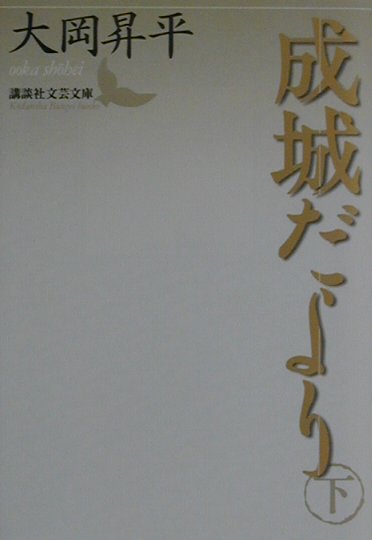 大岡昇平
ooka shōhei
講談社文芸文庫
Kodansha Bungei bunko
成城だより
下